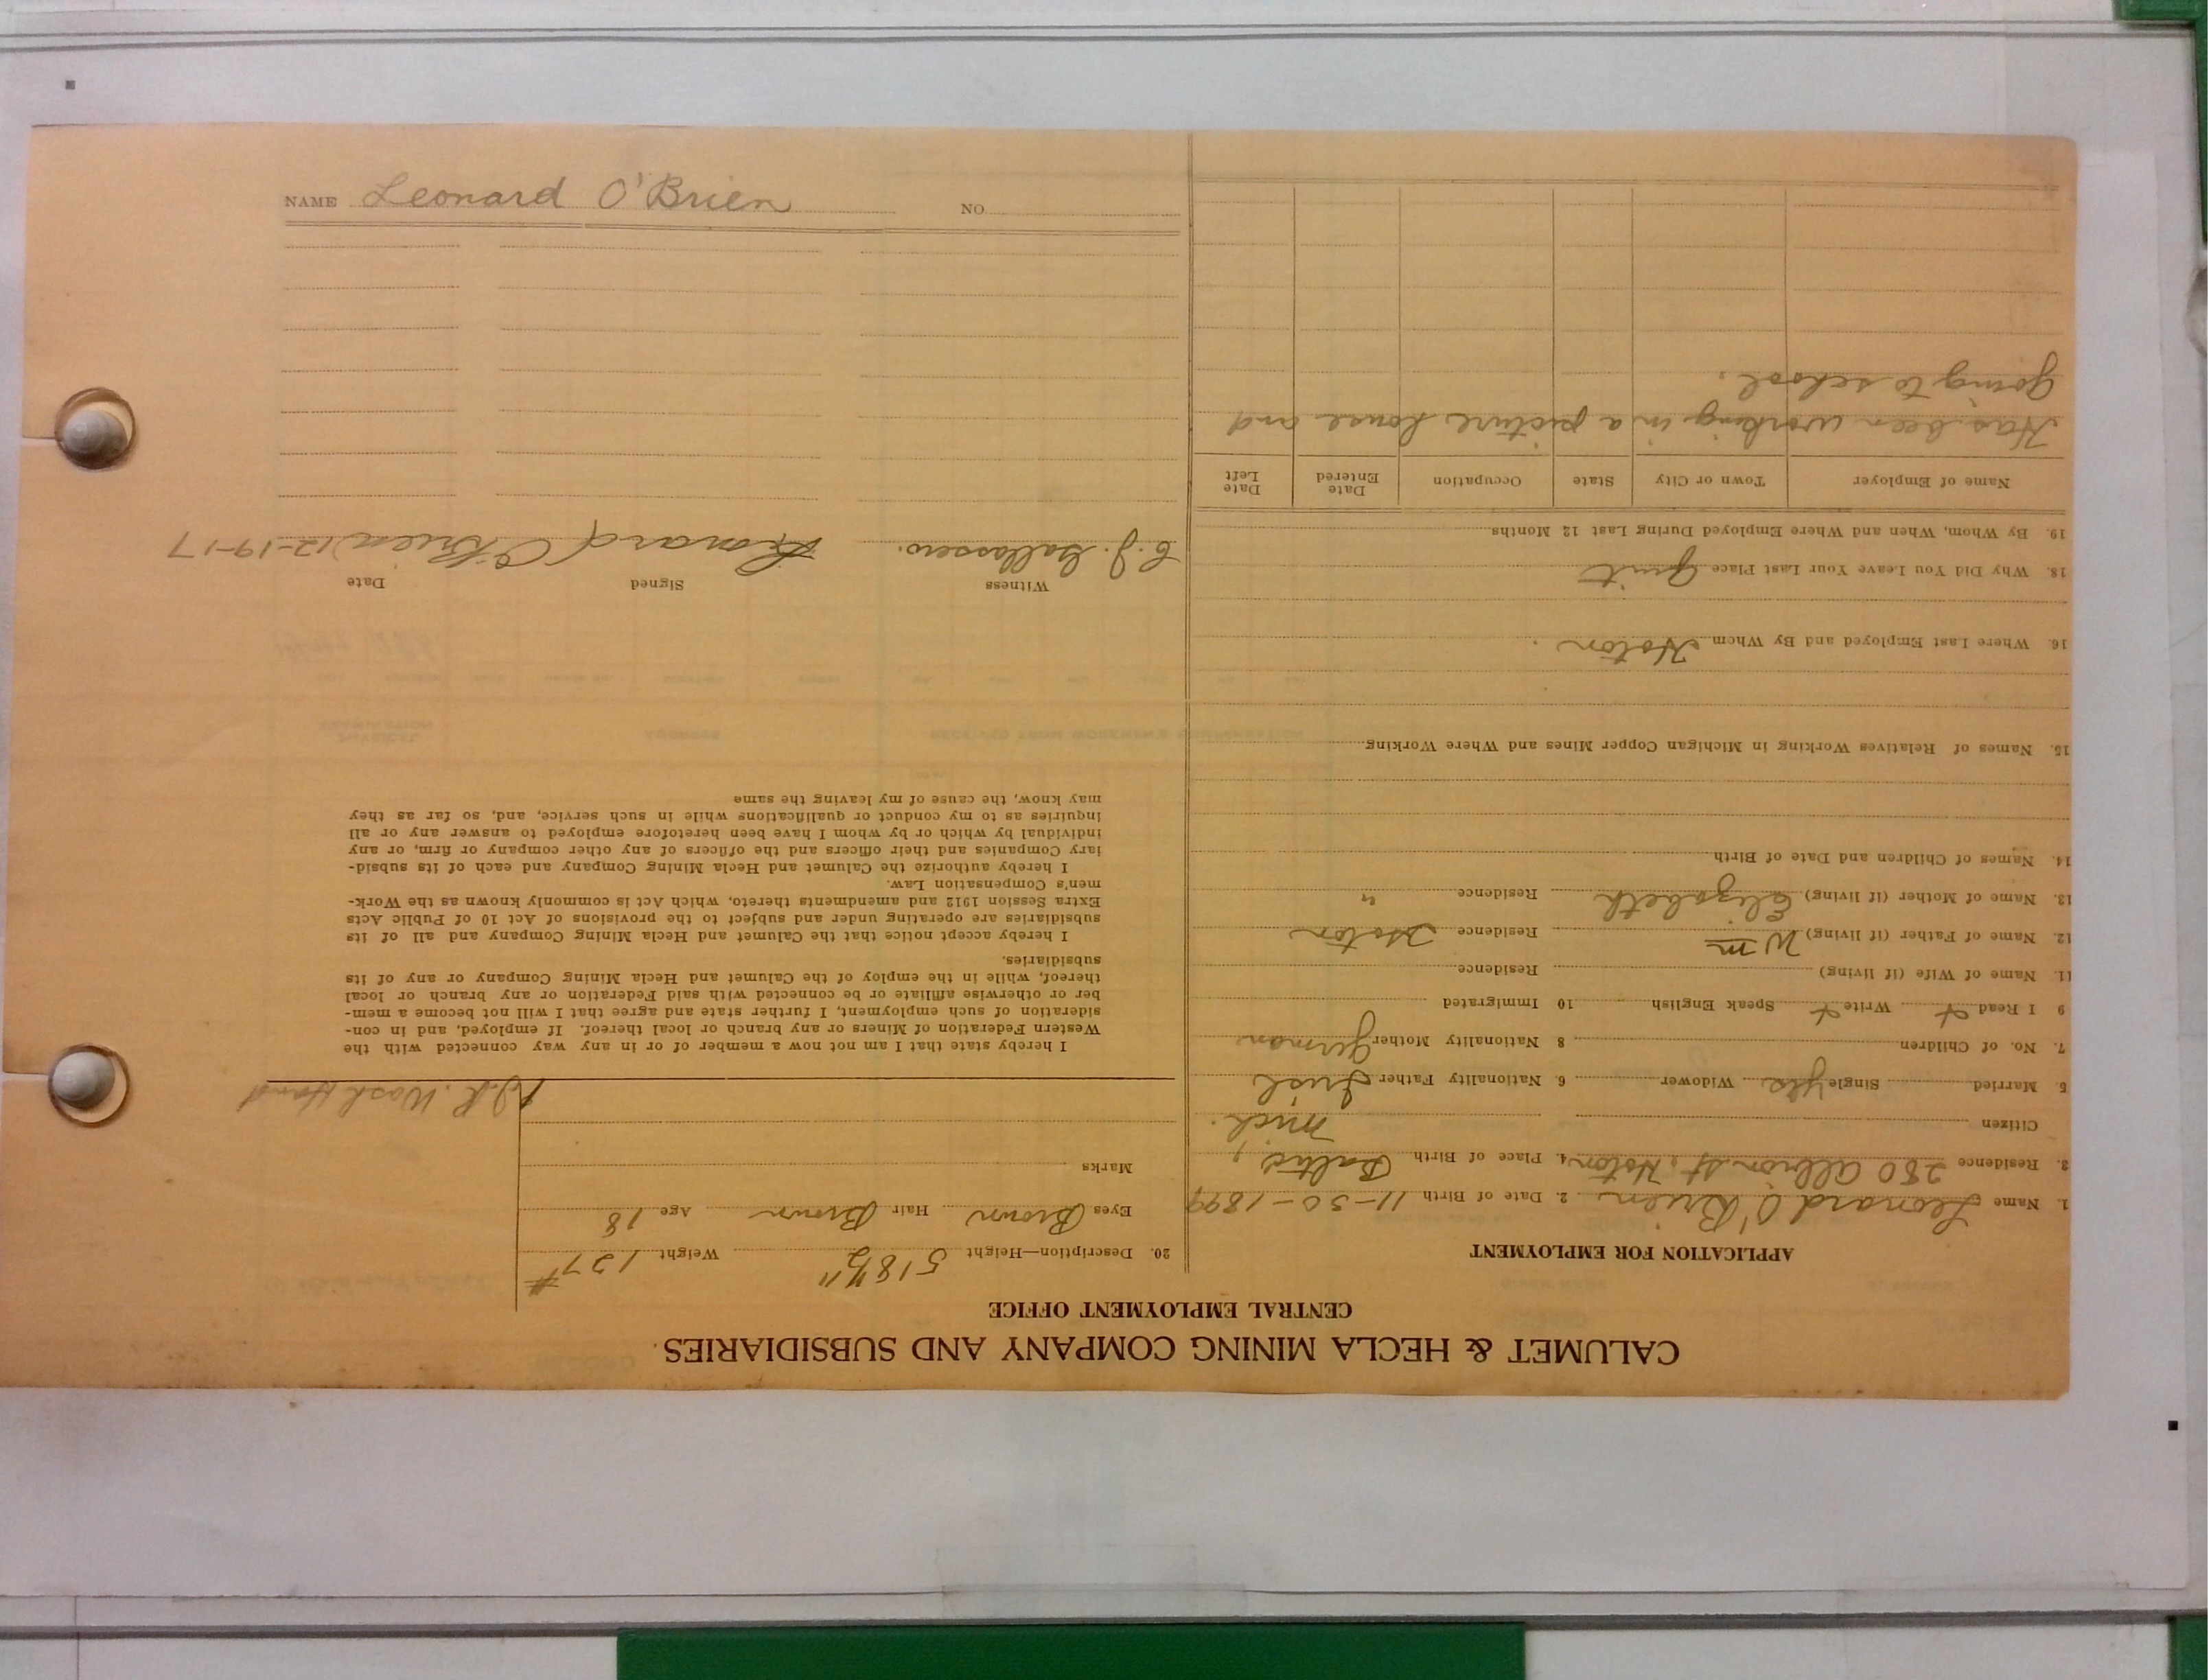 CALUMET & HECLA MINING COMPANY AND SUBSIDIARIES
CENTRAL EMPLOYMENT OFFICE
APPLICATION FOR EMPLOYMENT
1. Name Leonard O'Brien 2. Date of Birth 11-30-1899
3. Residence 280 Albion St. Hoton 4. Place of Birth Baltic,
Mich.
Citizen
5 Married Single yes Widower 6. Nationality Father Irish
7. No. of Children 8 Nationality Mother German
9 I Read x Write x Speak English 10 Immigrated
11. Name of Wife (if living) Residence
12. Name of Father (if living) Wm Residence Hoton
13. Name of Mother (if living) Elizabeth Residence "
14. Names of Children and Date of Birth
15. Names of Relatives Working in Michigan Copper Mines and Where Working
16. Where Last Employed and By Whom Hoton.
18. Why Did You Leave Your Last Place Quit
19. By Whom, When and Where Employed During Last 12 Months
Name of Employer Town or City State Occupation Date Entered Date Left
Has been working in a picture house and
going to school.
20. Description—Height 5' 8 1/2" Weight 127#
Eyes Brown Hair Brown Age 18
Marks
Wash Hand
I hereby state that I am not now a member of or in any way connected with the
Western Federation of Miners or any branch or local thereof. If employed, and in con-
sideration of such employment, I further state and agree that I will not become a mem-
ber or otherwise affiliate or be connected with said Federation or any branch or local
thereof, while in the employ of the Calumet and Hecla Mining Company or any of its
subsidiaries.
I hereby accept notice that the Calumet and Hecla Mining Company and all of its
subsidiaries are operating under and subject to the provisions of Act 10 of Public Acts
Extra Session 1912 and amendments thereto, which Act is commonly known as the Work-
men's Compensation Law.
I hereby authorize the Calumet and Hecla Mining Company and each of its subsid-
iary Companies and their officers and the officers of any other company or firm, or any
individual by which or by whom I have been heretofore employed to answer any or all
inquiries as to my conduct or qualifications while in such service, and, so far as they
may know, the cause of my leaving the same
Witness Signed Date
Leonard O'Brien 12-19-17
NAME Leonard O'Brien NO.